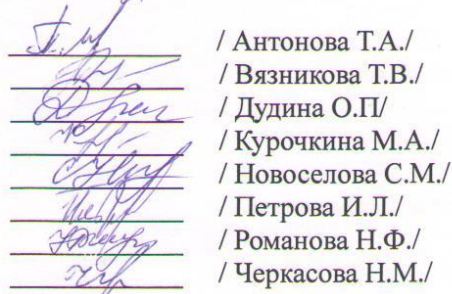 / Антонова Т.А./
/ Вязникова Т.В./
/ Дудина О.П/
/ Курочкина М.А./
/ Новоселова С.М./
/ Петрова И.Л./
/ Романова Н.Ф./
/ Черкасова Н.М./